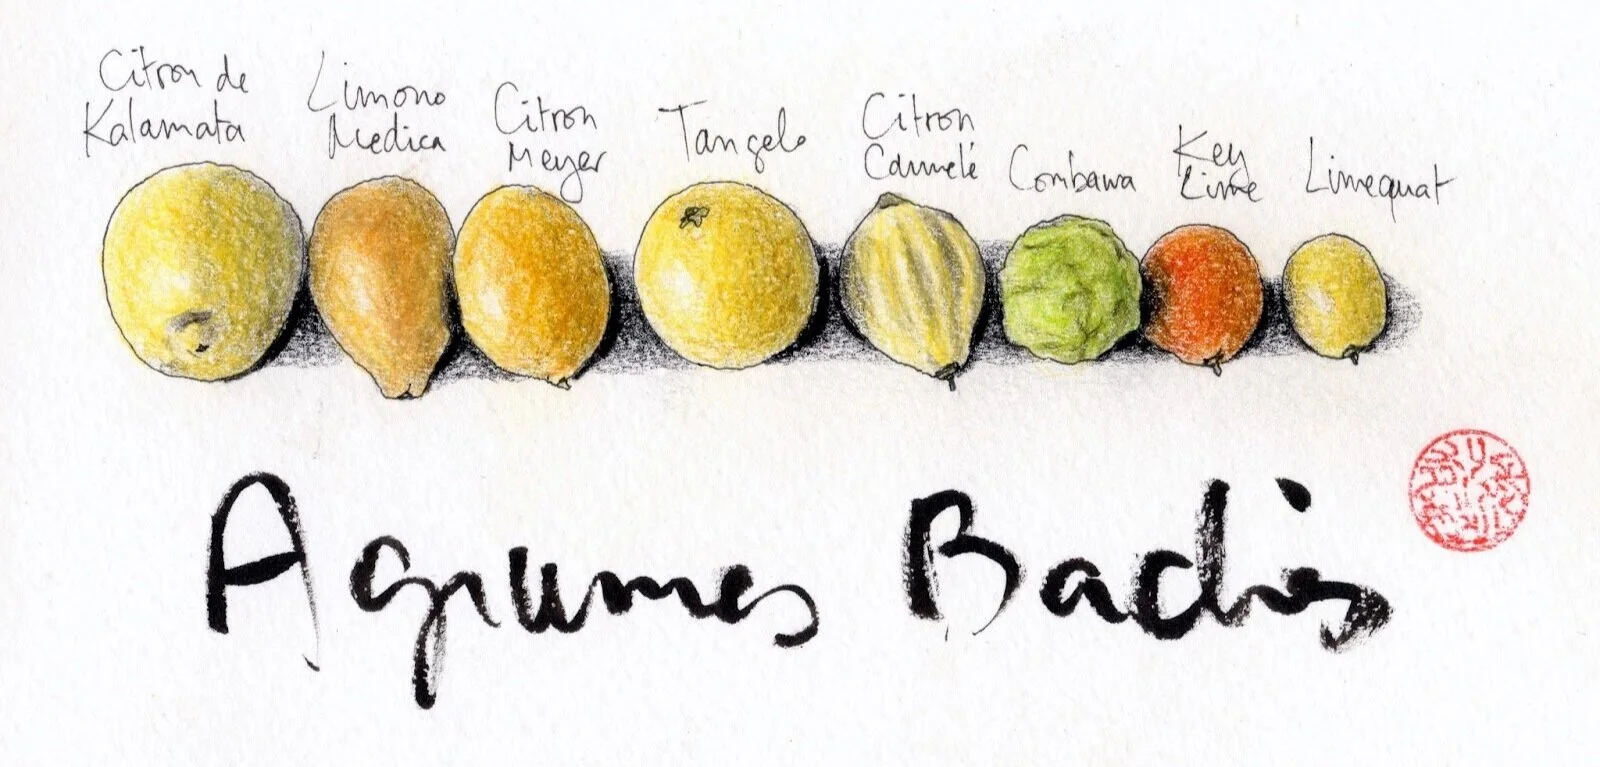 Citron de
Kalamata
Limono
Medica
Citron
Meyer
Tangelo
Citron
Cannelé
Combawa
Key
Lime
Limequat
Agrumes Bachès